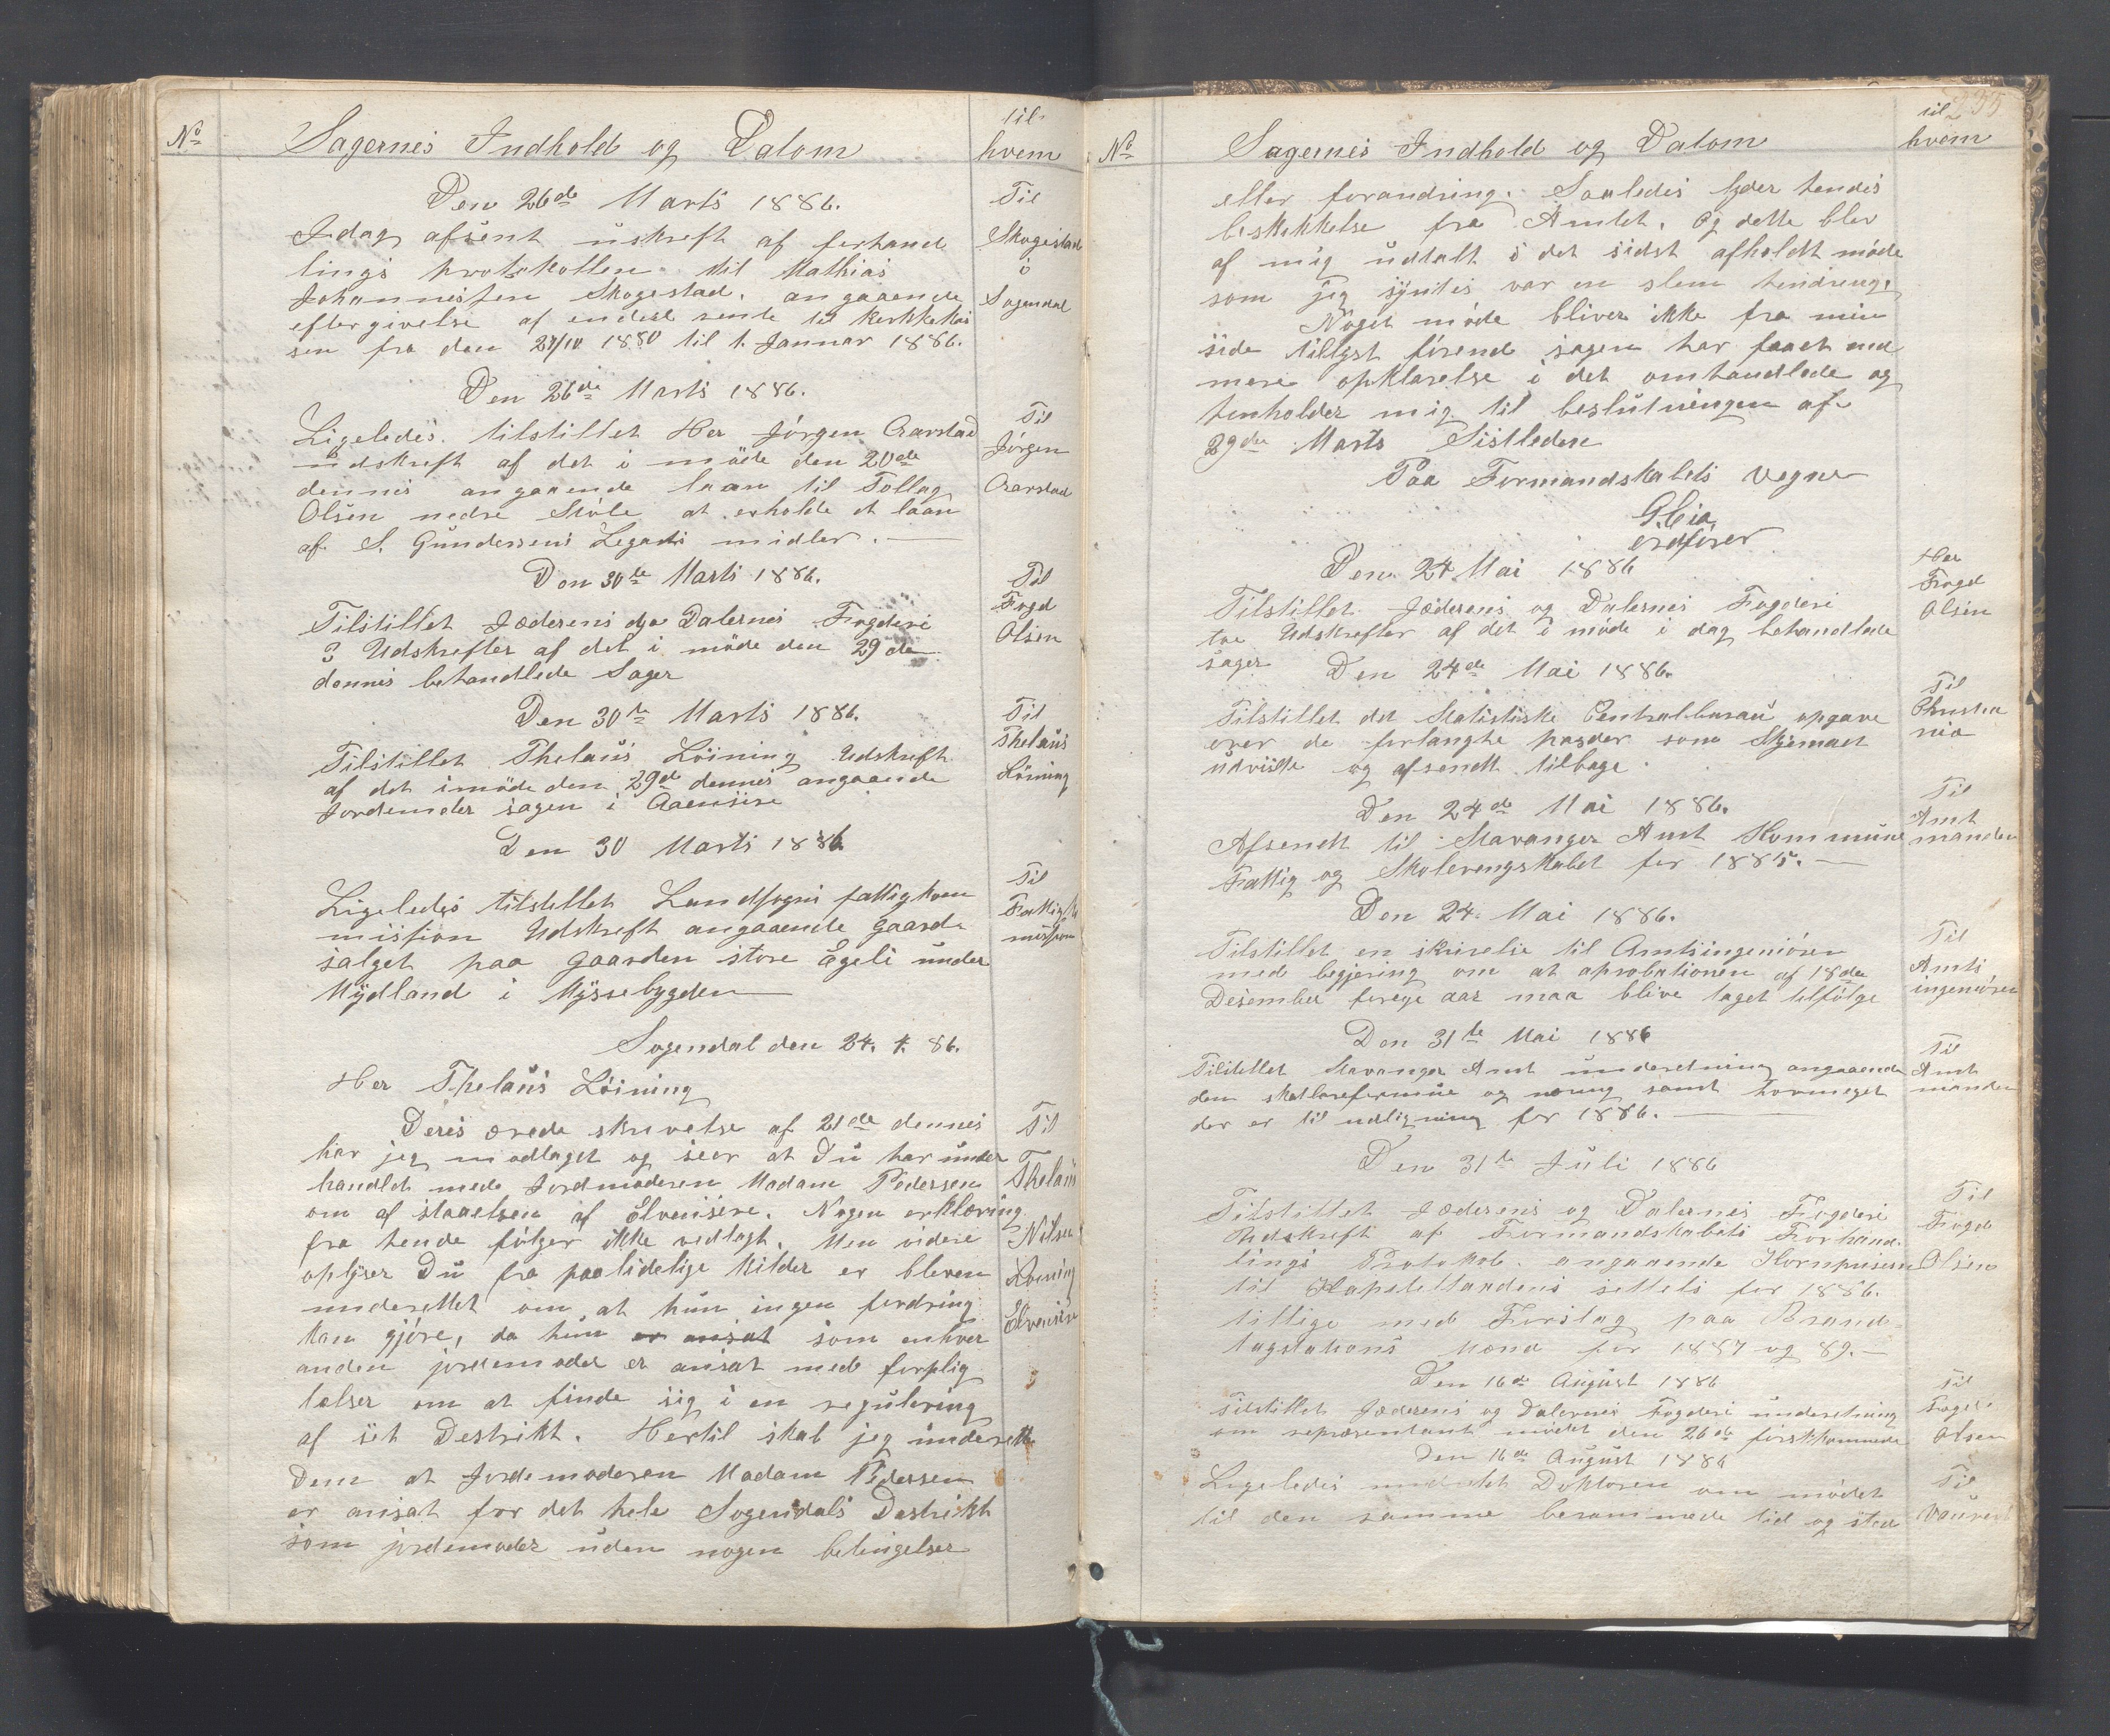 No
Sagernes Indhold og Datom
til
hvem
Den 26de Marts 1886.
Idag afsent uskreft af forhand
lings protokollen til Mathias
Johannessen Skogestad. angaaende
eftergivelse af endel rente til Kirkekas
sen fra den 24/10 1880 til 1. Januar 1886.
Til
Skogestad
i
Sogendal
Den 26de Marts 1886.
Ligeledes tilstillet Her Jörgen Aarstad
udskreft af det i möde den 20de
dennes angaaende laan til Tollag
Olsen nedre Skåle at erholde et laan
af S. Gundersens Legats midler.
Til
Jörgen
Aarstad
Den 30te Marts 1886.
Tilstillet Jæderens og Dalernes Fogderi
3 Udskrefter af det i möde den 29de
dennes behandlede Sager
Til
Fogd
Olsen
Den 30te Marts 1886.
Tilstillet Thelaus Löining Udskreft
af det i möde den 29de dennes angaaende
Jordemder sagen i Aaensire
Til
Thelaus
Löining
Den 30 Marts 1886
Ligeledes tilstillet Landsogns fattigkom
mission Udskreft angaaende gaards
salget paa gaarden store Ageli under
Mydland i Myssebygden
Til
Fattigko
mission
Sogendal den 24. 4. 86.
Her Thelaus Löining
Deres ærede skrivelse af 21de dennes
har jeg modtaget og seer at Du har under
handlet mede Jordmoderen Madam Pedersen
om af staaelsen af Elvensire. Nogen erklæring
fra hende fölger ikke vedlagt. Men videre
oplyser Du fra paalidelige kilder er bleven
underettet om at hun ingen fordring
kan gjöre, da hun er ansat som enhver
anden jordemoder er ansat med forplig
telser om at finde sig i en regulering
af sit Destrikt. Hertil skal jeg underette
Dem at Jordemoderen Madam Pedersen
er ansat for det hele Sogendals Destrikt
som jordemoder uden nogen betingelser
Til
Thelaus
Nilsen
Löining
Elvensire
No
Sagernes Indhold og Datom
til
hvem
eller forandring. Saaledes lyder hendes
beskikkelse fra Amtet. Og dette blev
af mig udtalt i det sidst afholdt möde
som jeg syntes var en slem hindring.
Noget möde bliver ikke fra min
side tillyst förend sagen har faaet nær
mere opklarelse i det omhandlede og
henholder mig til beslutningen af
29de Marts Sistleden
Paa Formandskabets vegne
ordförer
Den 24 Mai 1886
Tilstillet Jæderens og Dalernes Fogderi
toe Udskrefter af det i möde i dag behandlede
sager
Her
Fogd
Olsen
Den 24de Mai 1886.
Tilstillet det Statistiske Centralburau opgave
over de forlangte poster som Skjemaet
udviste og afsendt tilbage.
Til
Christia
nia
Den 24de Mai 1886.
Afsendt til Stavanger Amt Kommune
Fattig og Skolerengskabet for 1885.
Til
Amt
manden
Den 24. Mai 1886.
Tilstillet en skrivelse til Amtsingeniören
med begjæring om at aprobationen af 18de
Desember forege aar maa blive taget tilfölge
Til
Amts
ingeniören
Den 31te Mai 1886
Tilstillet Stavanger Amt underetning angaaende
den skatbareformue og næring samt hvormeget
der er til udligning for 1886.
Til
Amt
manden
Den 31te Juli 1886
Tilstillet Jæderens og Dalernes Fogderi
Udskreft af Formandskabets Forhand
lings Protokol angaaende Kornprisen
til Kapiteltaxtens settels for 1886.
tillige med Forslag paa Brand
tagstations Mænd for 1887 og 89.
Til
Fogd
Olsen
Den 16de August 1886
Tilstillet Jæderens og Dalernes Fogderi underetning
om representant mödet den 26de förstkommende
til
Foged
Olsen
Den 16de August 1886
Ligeledes Doktoren om mödet
til den samme berammede tid og sted
Til